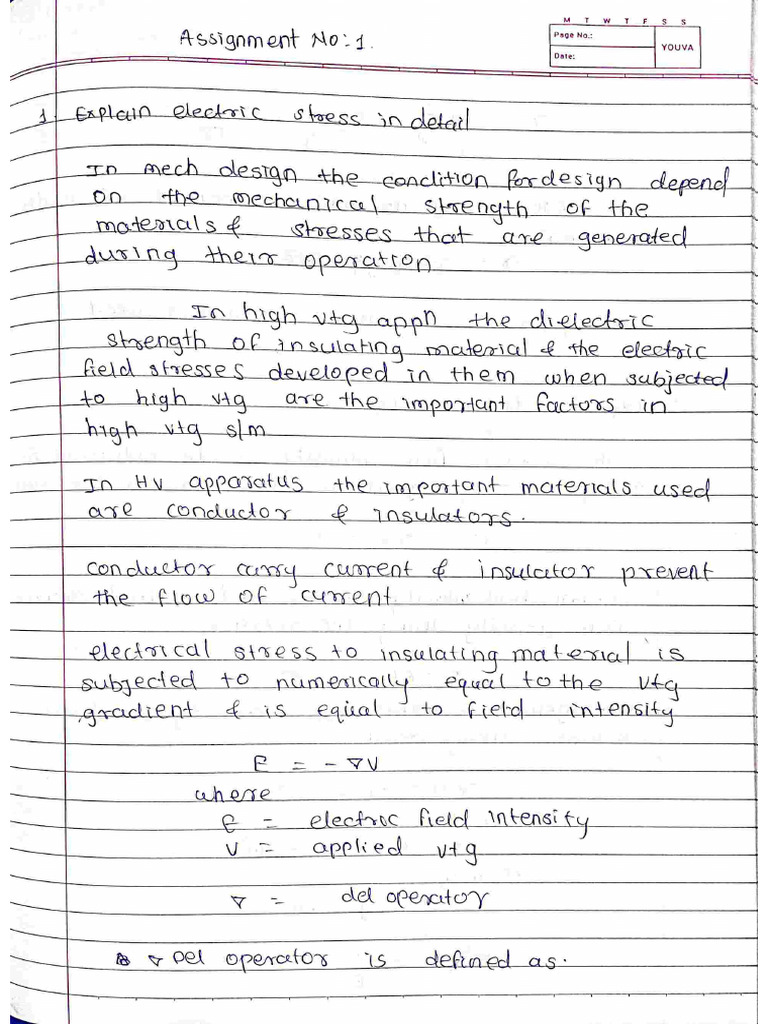 M T W T F S S
Assignment No:1.
Page No.:
YOUVA
Date:
1 Explain electric stress in detail
In mech design the condition for design depend
on the mechanical strength of the
materials & stresses that are generated
during their operation
In high vtg appn the dielectric
strength of insulating material & the electric
field stresses developed in them when subjected
to high vtg are the important factors in
high vtg s/m
In HV apparatus the important materials used
are conductor & insulators.
conductor carry current & insulator prevent
the flow of current.
electrical stress to insulating material is
subjected to numerically equal to the vtg
gradient & is equal to field intensity
E = - ∇V
where
E = electric field intensity
V = applied vtg
∇ = del operator
∇ Del operator is defined as.